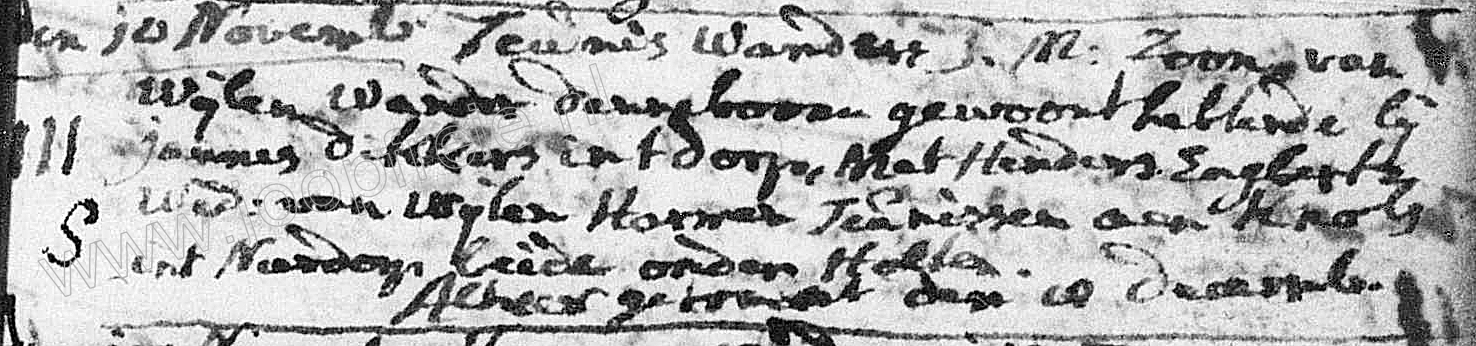 den 10 Novemb Teunis Wanders J. M. Zoon van
Wijlen Wander gewoont hebbende bij
jannes Dikkers int dorp, Met Henders Engberts
Wed. van Wijlen Harmen Teunissen aen
int Neerdorp beide onder Holten.
Alhier getrouwt den 10 decembr.
III
S